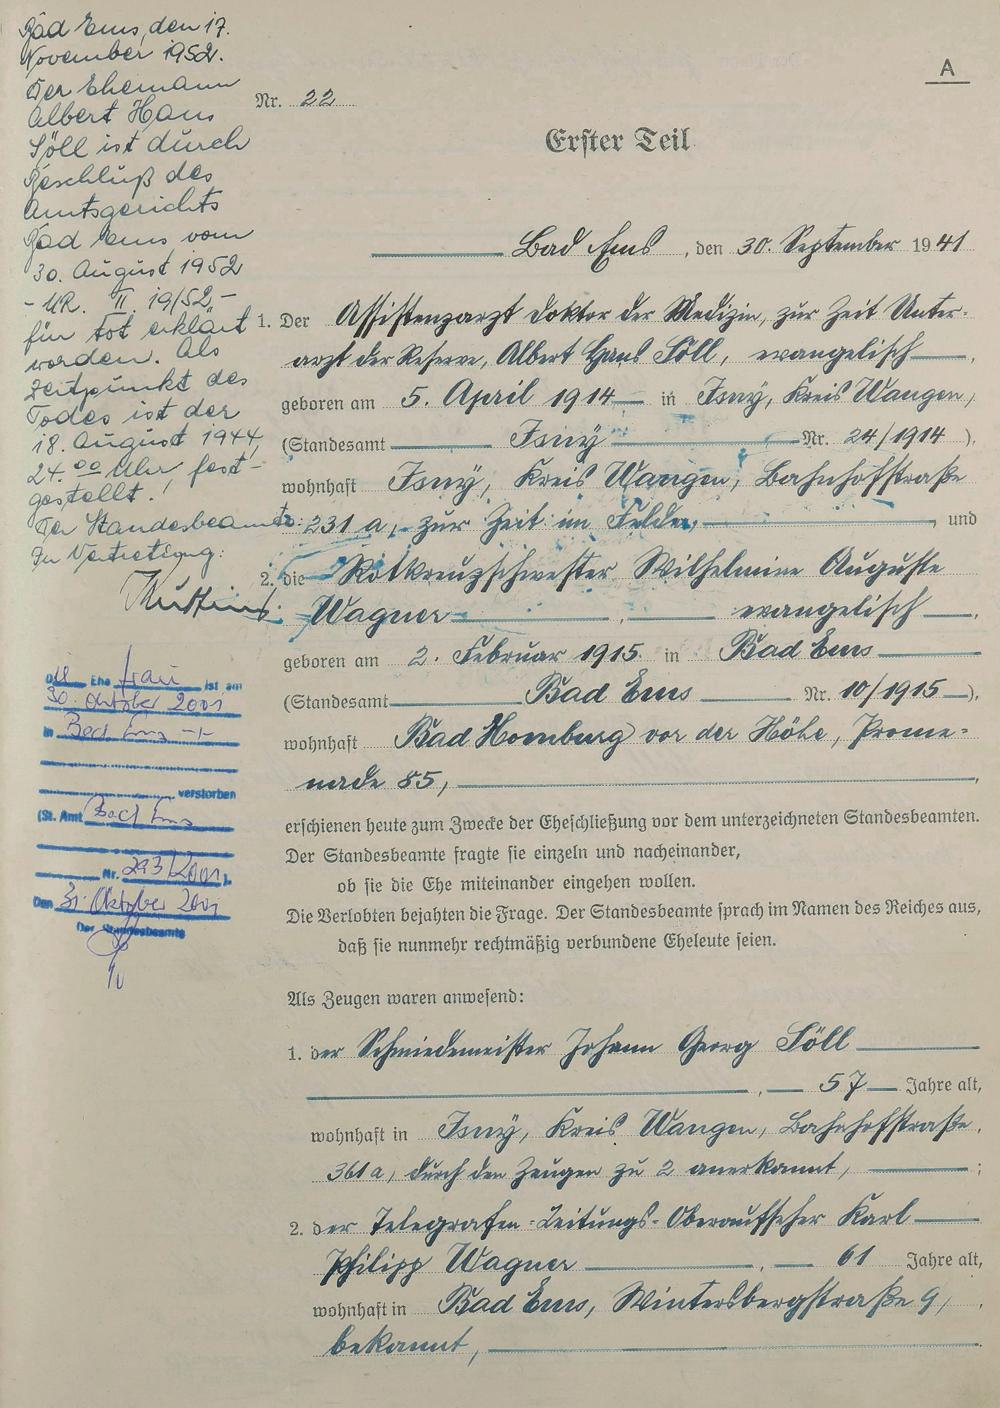 Bad Ems, den 17.
November 1952.
Der Ehemann
Albert Hans
Söll ist durch
Beschluß des
Amtsgerichts
Bad Ems vom
30. August 1952
- UR. II. 19/52,-
für tot erklärt
worden. Als
Zeitpunkt des
Todes ist der
18. August 1944,
24.00 Uhr, fest-
gestellt.!
Der Standesbeamte:
In Vertretung:
Die Ehe frau ist am
30. Oktober 2001
in Bad Ems -/-
verstorben
(St. Amt Bad Ems
Nr. 293/2001).
Den 31. Oktober 2001
Der Standesbeamte
A
Nr. 22
Erster Teil
Bad Ems, den 30. September 1941
1. Der Assistenzarzt Doktor der Medizin, zur Zeit Unter-
arzt der Reserve, Albert Hans Söll, evangelisch,
geboren am 5. April 1914 in Isny, Kreis Wangen,
(Standesamt Isny Nr. 24/1914),
wohnhaft Isny, Kreis Wangen, Bahnhofstraße
231 a, zur Zeit im Felde, und
2. die Rotkreuzschwester Wilhelmine Auguste
Wagner, evangelisch,
geboren am 2. Februar 1915 in Bad Ems
(Standesamt Bad Ems Nr. 10/1915),
wohnhaft Bad Homburg vor der Höhe, Prome-
nade 85,
erschienen heute zum Zwecke der Eheschließung vor dem unterzeichneten Standesbeamten.
Der Standesbeamte fragte sie einzeln und nacheinander,
ob sie die Ehe miteinander eingehen wollen.
Die Verlobten bejahten die Frage. Der Standesbeamte sprach im Namen des Reiches aus,
daß sie nunmehr rechtmäßig verbundene Eheleute seien.
Als Zeugen waren anwesend:
1. der Schmiedemeister Johann Georg Söll
, 57 Jahre alt,
wohnhaft in Isny, Kreis Wangen, Bahnhofstraße,
361 a, durch den Zeugen zu 2 anerkannt, ;
2. der Telegrafen-Leitungs-Oberaufseher Karl
Philipp Wagner, 61 Jahre alt,
wohnhaft in Bad Ems, Wintersbergstraße 9,
bekannt,